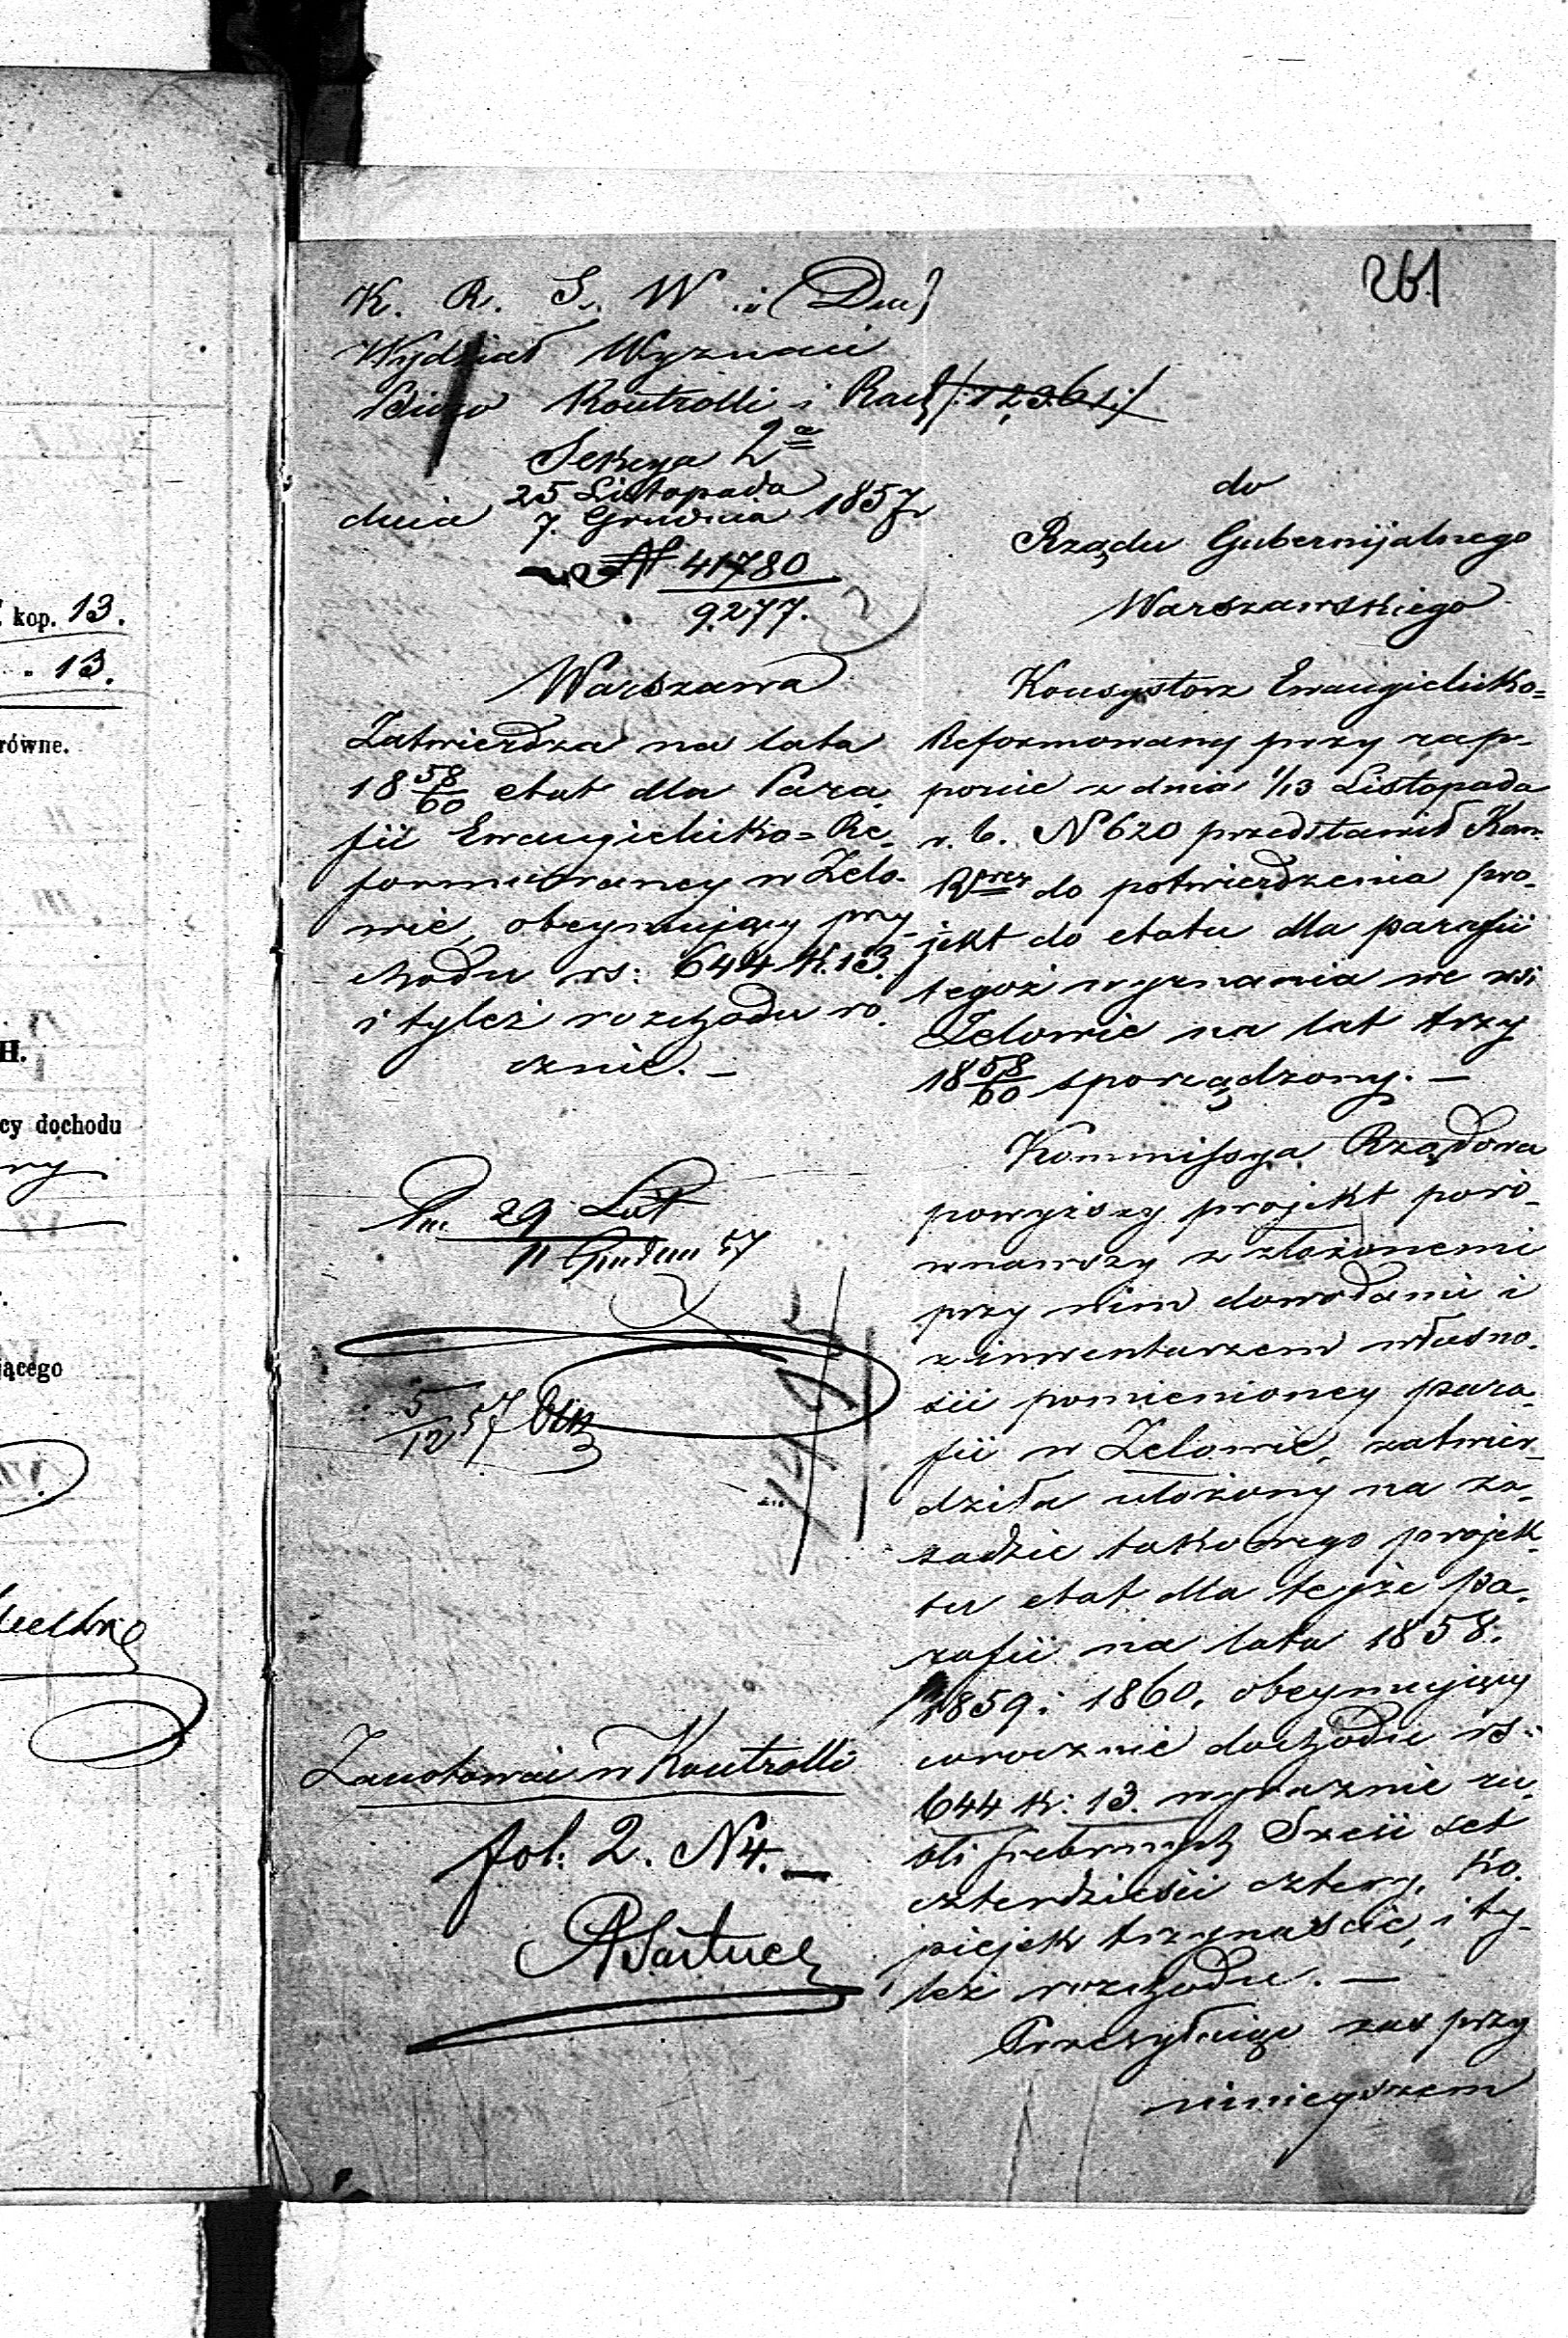 kop. 13.
13.
równe.
H.
cy dochodu
jącego
261
K. R. S. W. i Duch
Wydział Wyznań
Biuro Kontrolli i Rach /:12361:/
Sekcya 2a
dnia 25 Listopada
7. Grudnia 1857 r
N 41780
9277.
Warszawa
Zatwierdza na lata
18 58/60 etat dla Para
fii Ewangielicko=Re
formowaney w Zelo-
wie, obeymujący przy
chodu rs: 644 k. 13.
i tyleż rozchodu ro
cznie. —
29 List
11 Grudnia 57
5/12 57
1495
Zanotowano w Kontrolli
fol: 2. N 4. —
do
Rządu Gubernijalnego
Warszawskiego
Konsystorz Ewangielicko=
Reformowany przy rap-
porcie z dnia 1/13 Listopada
r. b. N 620 przedstawił Kom
Rząd do potwierdzenia pro-
jekt do etatu dla parafii
tegoż wyznania we wsi
Zelowie na lat trzy
18 58/60 sporządzony. —
Kommissya Rządowa
powyższy projekt poró-
wnawszy z złożonemi
przy nim dowodami i
z inwentarzem własno-
ści pomienioney para-
fii w Zelowie, zatwier-
dziła ułożony na za-
sadzie takowego projek-
tu etat dla teyże pa-
rafii na lata 1858.
1859 i 1860, obeymujący
corocznie dochodu rs:
644 k: 13. wyraźnie ru-
bli srebrnych Sześć set
czterdzieści cztery, ko-
piejek trzynaście, i ty-
leż rozchodu. —
Przesyłając zaś przy
ninieyszem